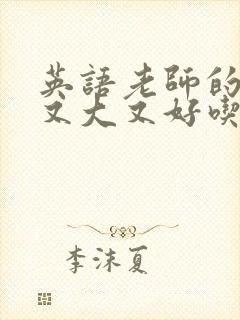 英語老師的
又大又好喫
李沫夏